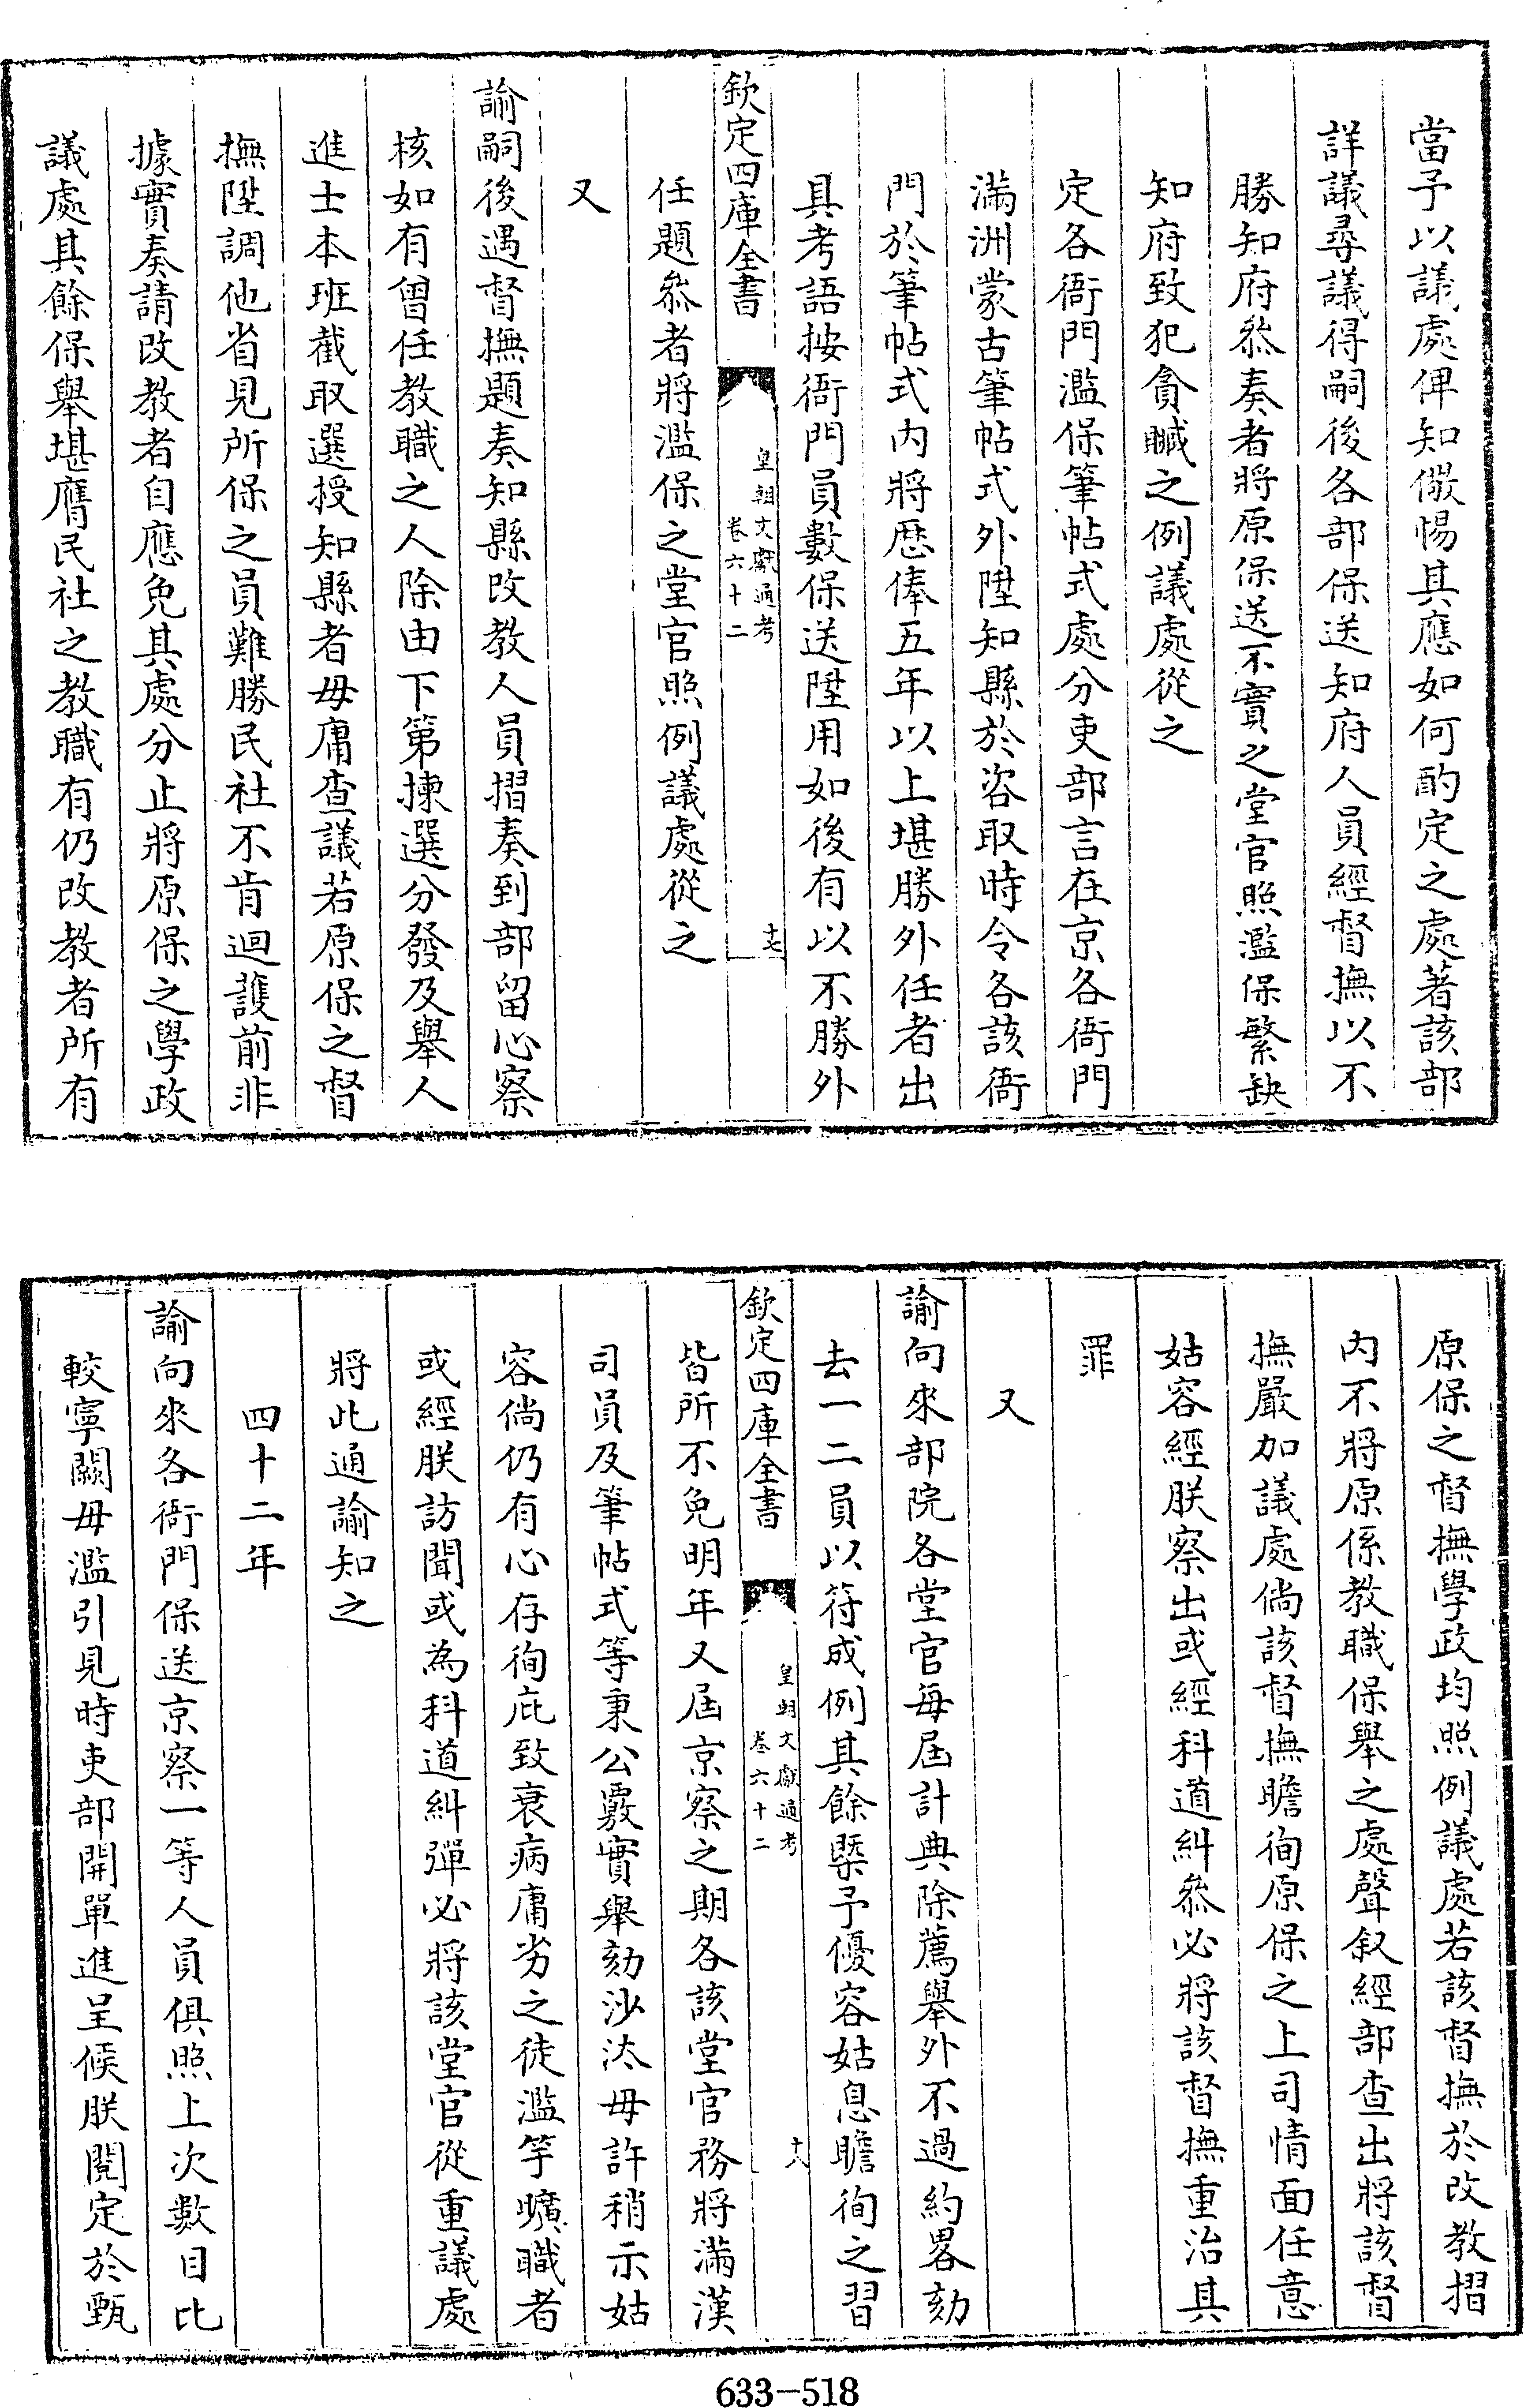 當予以議處俾知儆惕其應如何酌定之處著該部
詳議尋議得嗣後各部保送知府人員經督撫以不
勝知府叅奏者將原保送不實之堂官照濫保繁缺
知府致犯貪贓之例議處從之
定各衙門濫保筆帖式處分吏部言在京各衙門
滿洲蒙古筆帖式外陞知縣於咨取時令各該衙
門於筆帖式内將歴俸五年以上堪勝外任者出
具考語按衙門員數保送陞用如後有以不勝外
欽定四庫全書
皇朝文獻通考
卷六十二
十七
任題叅者將濫保之堂官照例議處從之
又
諭嗣後遇督撫題奏知縣改教人員摺奏到部留心察
核如有曾任教職之人除由下第揀選分發及舉人
進士本班截取選授知縣者毋庸查議若原保之督
撫陞調他省見所保之員難勝民社不肯迴護前非
據實奏請改教者自應免其處分止將原保之學政
議處其餘保舉堪膺民社之教職有仍改教者所有
原保之督撫學政均照例議處若該督撫於改教摺
内不將原係教職保舉之處聲叙經部查出將該督
撫嚴加議處倘該督撫瞻徇原保之上司情面任意
姑容經朕察出或經科道糾叅必將該督撫重治其
罪
又
諭向來部院各堂官每屆計典除薦舉外不過約畧劾
去一二員以符成例其餘槩予優容姑息瞻徇之習
欽定四庫全書
皇朝文獻通考
卷六十二
十八
皆所不免明年又屆京察之期各該堂官務將滿漢
司員及筆帖式等秉公覈實舉劾沙汰毋許稍示姑
容倘仍有心存徇庇致衰病庸劣之徒濫竽曠職者
或經朕訪聞或為科道糾彈必將該堂官從重議處
將此通諭知之
四十二年
諭向來各衙門保送京察一等人員俱照上次數目比
較寧闕毋濫引見時吏部開單進呈候朕閱定於甄
633-518